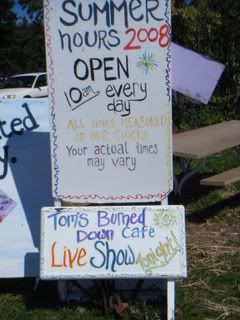 SUMMER
HOURS 2008
OPEN
10am every
day
ALL times MEASURED
ON OUR CLOCKS
Your actual times
may vary
TOM'S Burned
Down Cafe
Live Show
tonight!
ted
y.